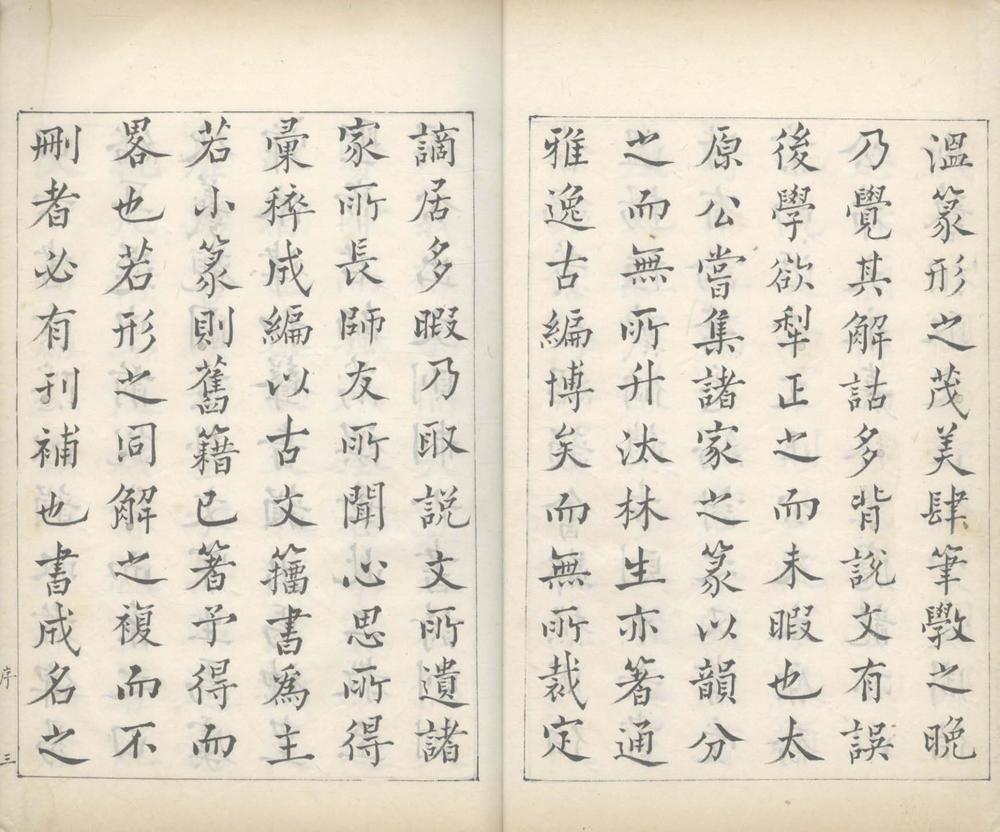 溫篆形之茂美肆筆斆之晚
乃覺其解詁多背說文有誤
後學欲犁正之而未暇也太
原公嘗集諸家之篆以韻分
之而無所升汰林生亦著通
雅逸古編博矣而無所裁定
謫居多暇乃取説文所遺諸
家所長師友所聞心思所得
彚稡成編以古文籀書爲主
若小篆則舊籍已著予得而
畧也若形之同解之複而不
刪者必有刊補也書成名之
序
三